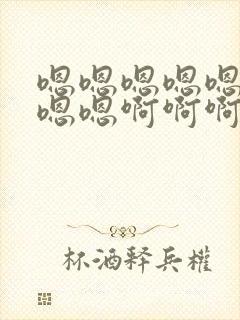 嗯嗯嗯嗯嗯
嗯嗯啊啊啊
杯酒释兵權